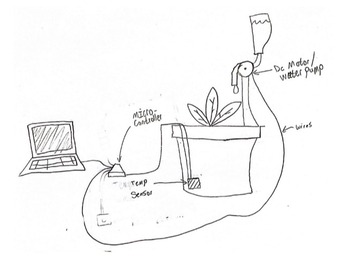 DC Motor/
Water Pump
Micro-
Controller
wires
Temp
Sensor